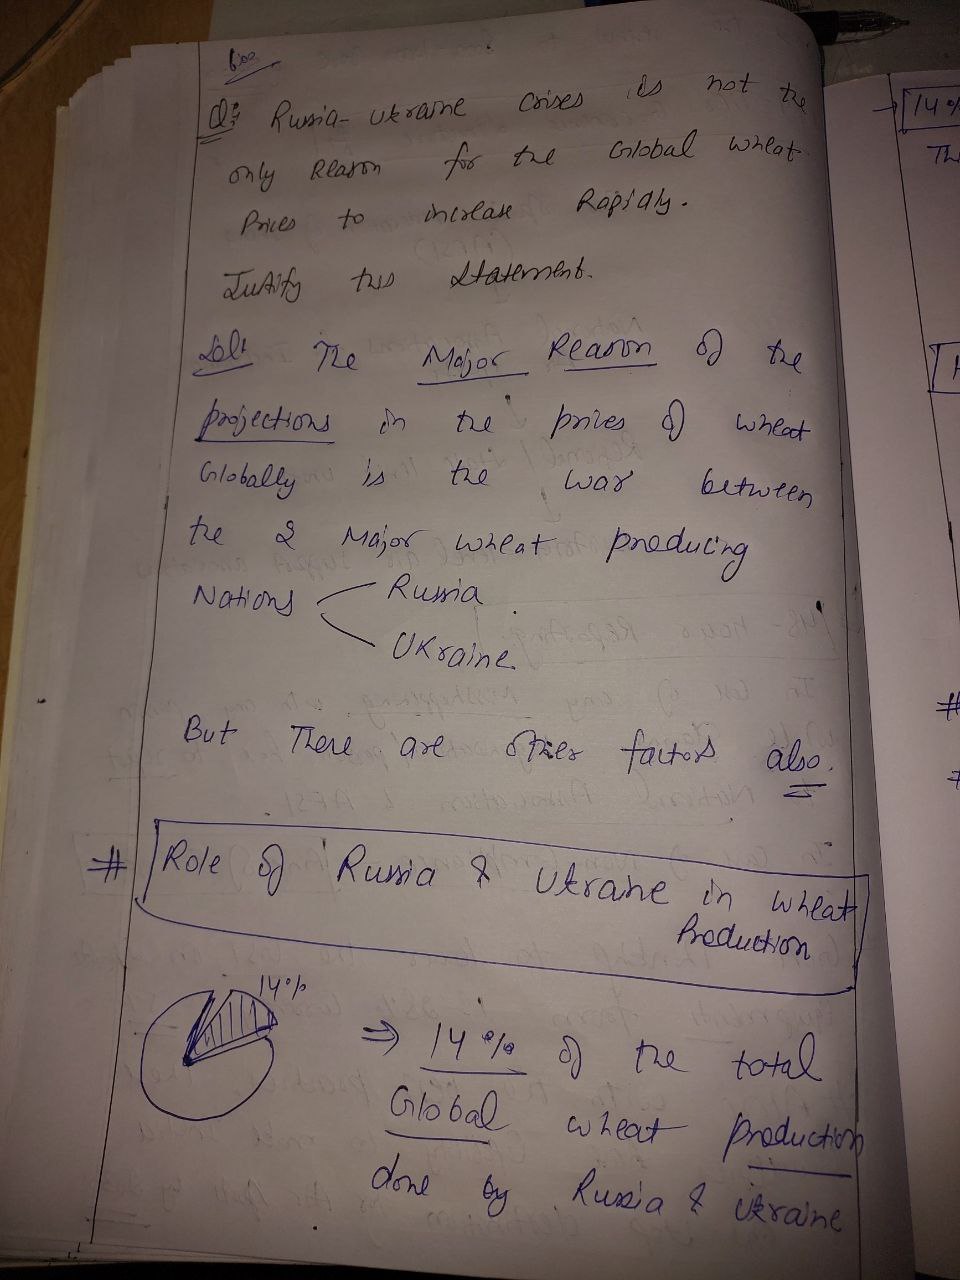 Q:
Russia-Ukraine crises is not the
only Reason for the Global wheat
Prices to increase Rapidly.
Justify this Statement.
Sol:
The Major Reason of the
projections in the prices of wheat
Globally is the war between
the 2 Major wheat producing
Nations Russia
Ukraine.
But There are other factors also.
# Role of Russia & Ukraine in wheat
Production
14%
⇒ 14% of the total
Global wheat production
done by Russia & Ukraine
→ 14%
Th
H
#